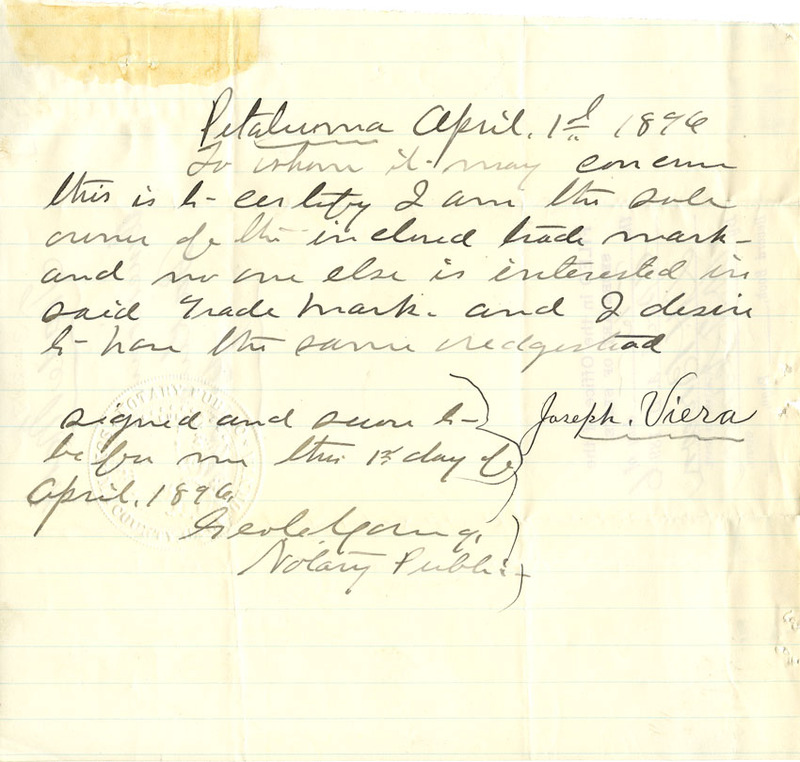 Petaluma April. 1st 1896
To whom it may concern
this is to certify I am the sole
owner of the inclosed trade mark
and no one else is interested in
said trade mark. and I desire
to have the same
signed and sworn to
before me this 1st day of
April. 1896.
Joseph. Viera
Notary Public
NOTARY PUBLIC
COUNTY